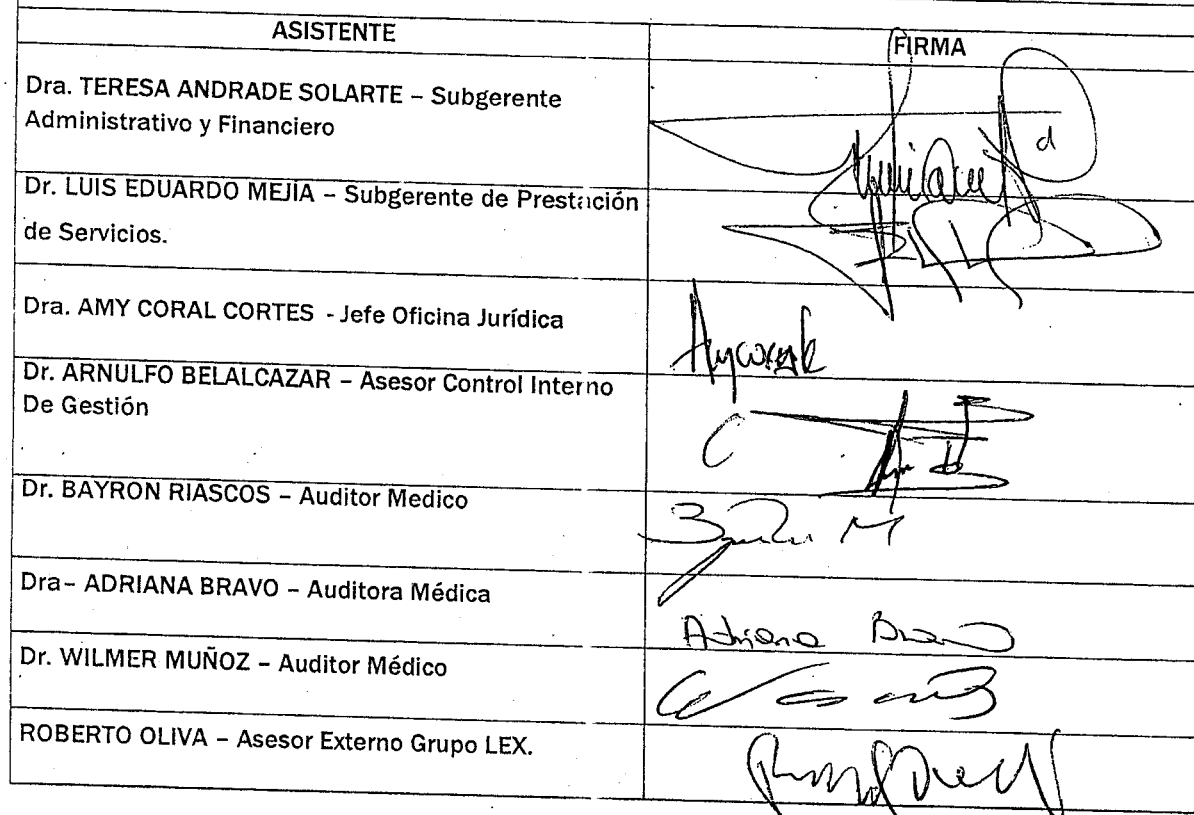 ASISTENTE
FIRMA
Dra. TERESA ANDRADE SOLARTE – Subgerente
Administrativo y Financiero
Dr. LUIS EDUARDO MEJIA – Subgerente de Prestación
de Servicios.
Dra. AMY CORAL CORTES - Jefe Oficina Jurídica
Dr. ARNULFO BELALCAZAR – Asesor Control Interno
De Gestión
Dr. BAYRON RIASCOS – Auditor Medico
Dra– ADRIANA BRAVO – Auditora Médica
Adriana Bravo
Dr. WILMER MUÑOZ – Auditor Médico
ROBERTO OLIVA – Asesor Externo Grupo LEX.